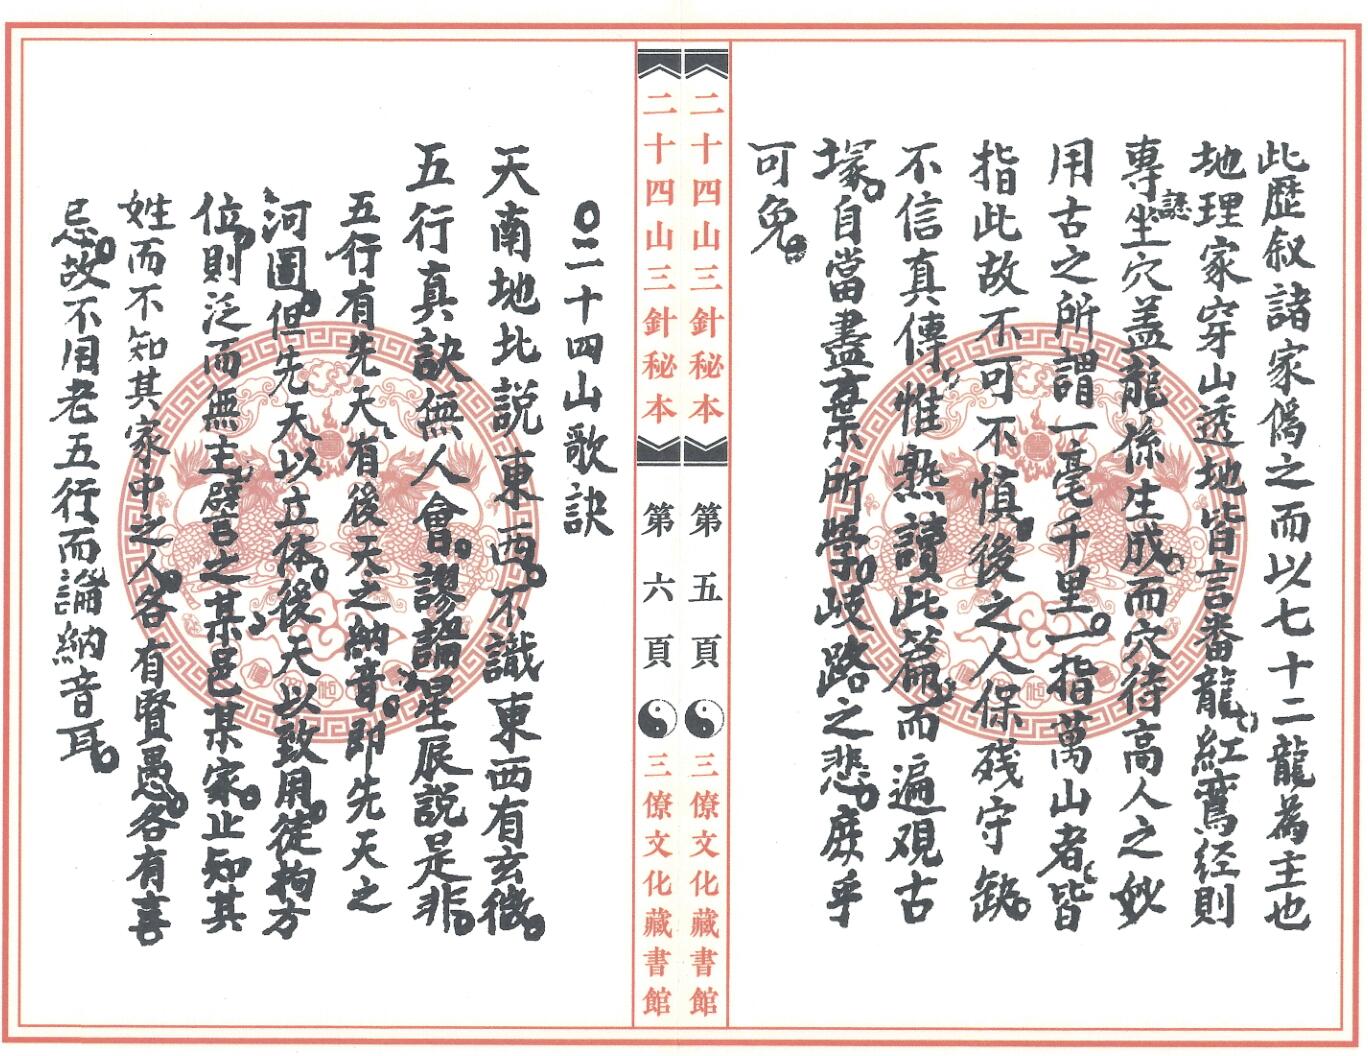 此歷叙諸家偽之而以七十二龍為主也
地理家穿山透地皆言番龍紅鸞经則
專㘴穴盖龍係生成而穴待高人之妙
誌
用古之所謂一毫千里一指萬山者皆
指此故不可不慎後之人保残守缺
不信真傳惟熟讀此篇而遍观古
塚自當盡棄所學歧路之悲庶乎
可免
二十四山三針秘本
第五頁
三僚文化藏書館
二十四山三針秘本
第六頁
三僚文化藏書館
〇二十四山歌訣
天南地北說東西不識東西有玄微
五行真訣無人會謬論星辰說是非
五行有先天有後天之納音即先天之
河圖但先天以立体後天以致用徒拘方
位則泛而無主譬之某邑某家止知其
姓而不知其家中之人各有賢愚各有喜
忌故不用老五行而論納音耳